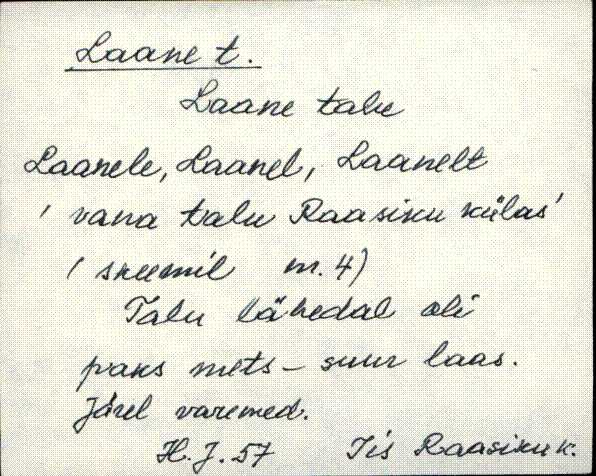 Laane t.
Laane talu
Laanele, Laanel, Laanelt
' vana talu Raasiku külas'
( skeemil m. 4)
Talu lähedal oli
paks mets - suur laas.
Järel varemed.
H. J. 57 Jis Raasiku k.